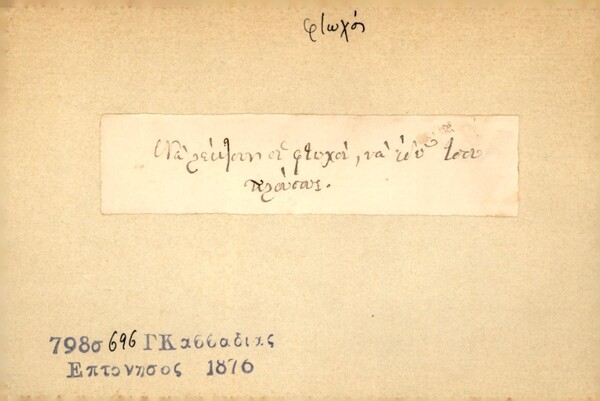 φτωχός
Νὰ λείψουν οἱ φτωχοί, νὰ ἰδῶ
πλούσιοι.
798σ 696 ΓΚαββαδιας
Επτονησος 1876